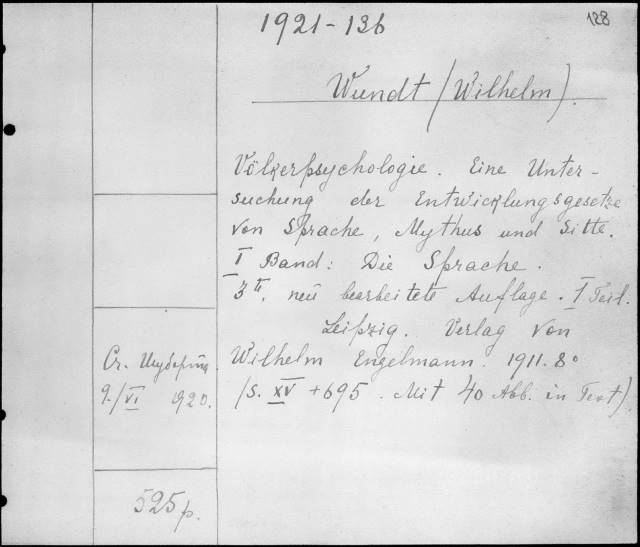 1921-136
128
Wundt (Wilhelm).
Völkerpsychologie. Eine Unter-
suchung der Entwicklungsgesetze
von Sprache, Mythus und Sitte.
I Band: Die Sprache.
3te, neu bearbeitete Auflage. I Teil.
Leipzig. Verlag von
Wilhelm Engelmann. 1911. 8°
(S. XV + 695. Mit 40 Abb. in Text)
Ст.
9./VI 1920.
525 р.